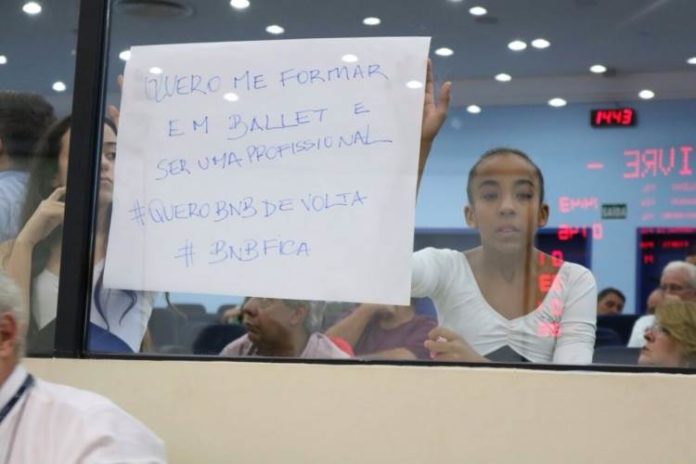 QUERO ME FORMAR
EM BALLET E
SER UMA PROFISSIONAL
#QUERO BNB DE VOLTA
# BNB FICA
1443
IVRE
SAÍDA